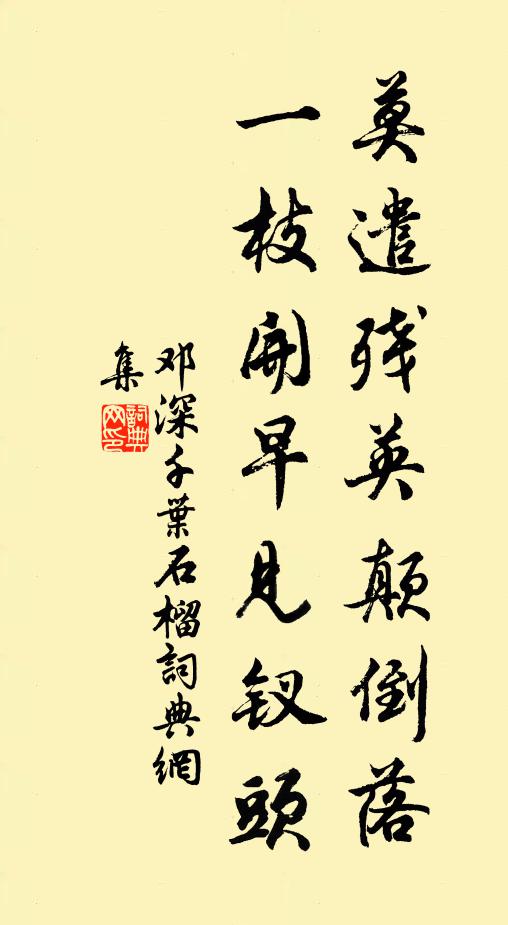 莫遣残英颠倒落
一枝開早見钗頭
邓深千葉石榴詞典網
集
詞典网印